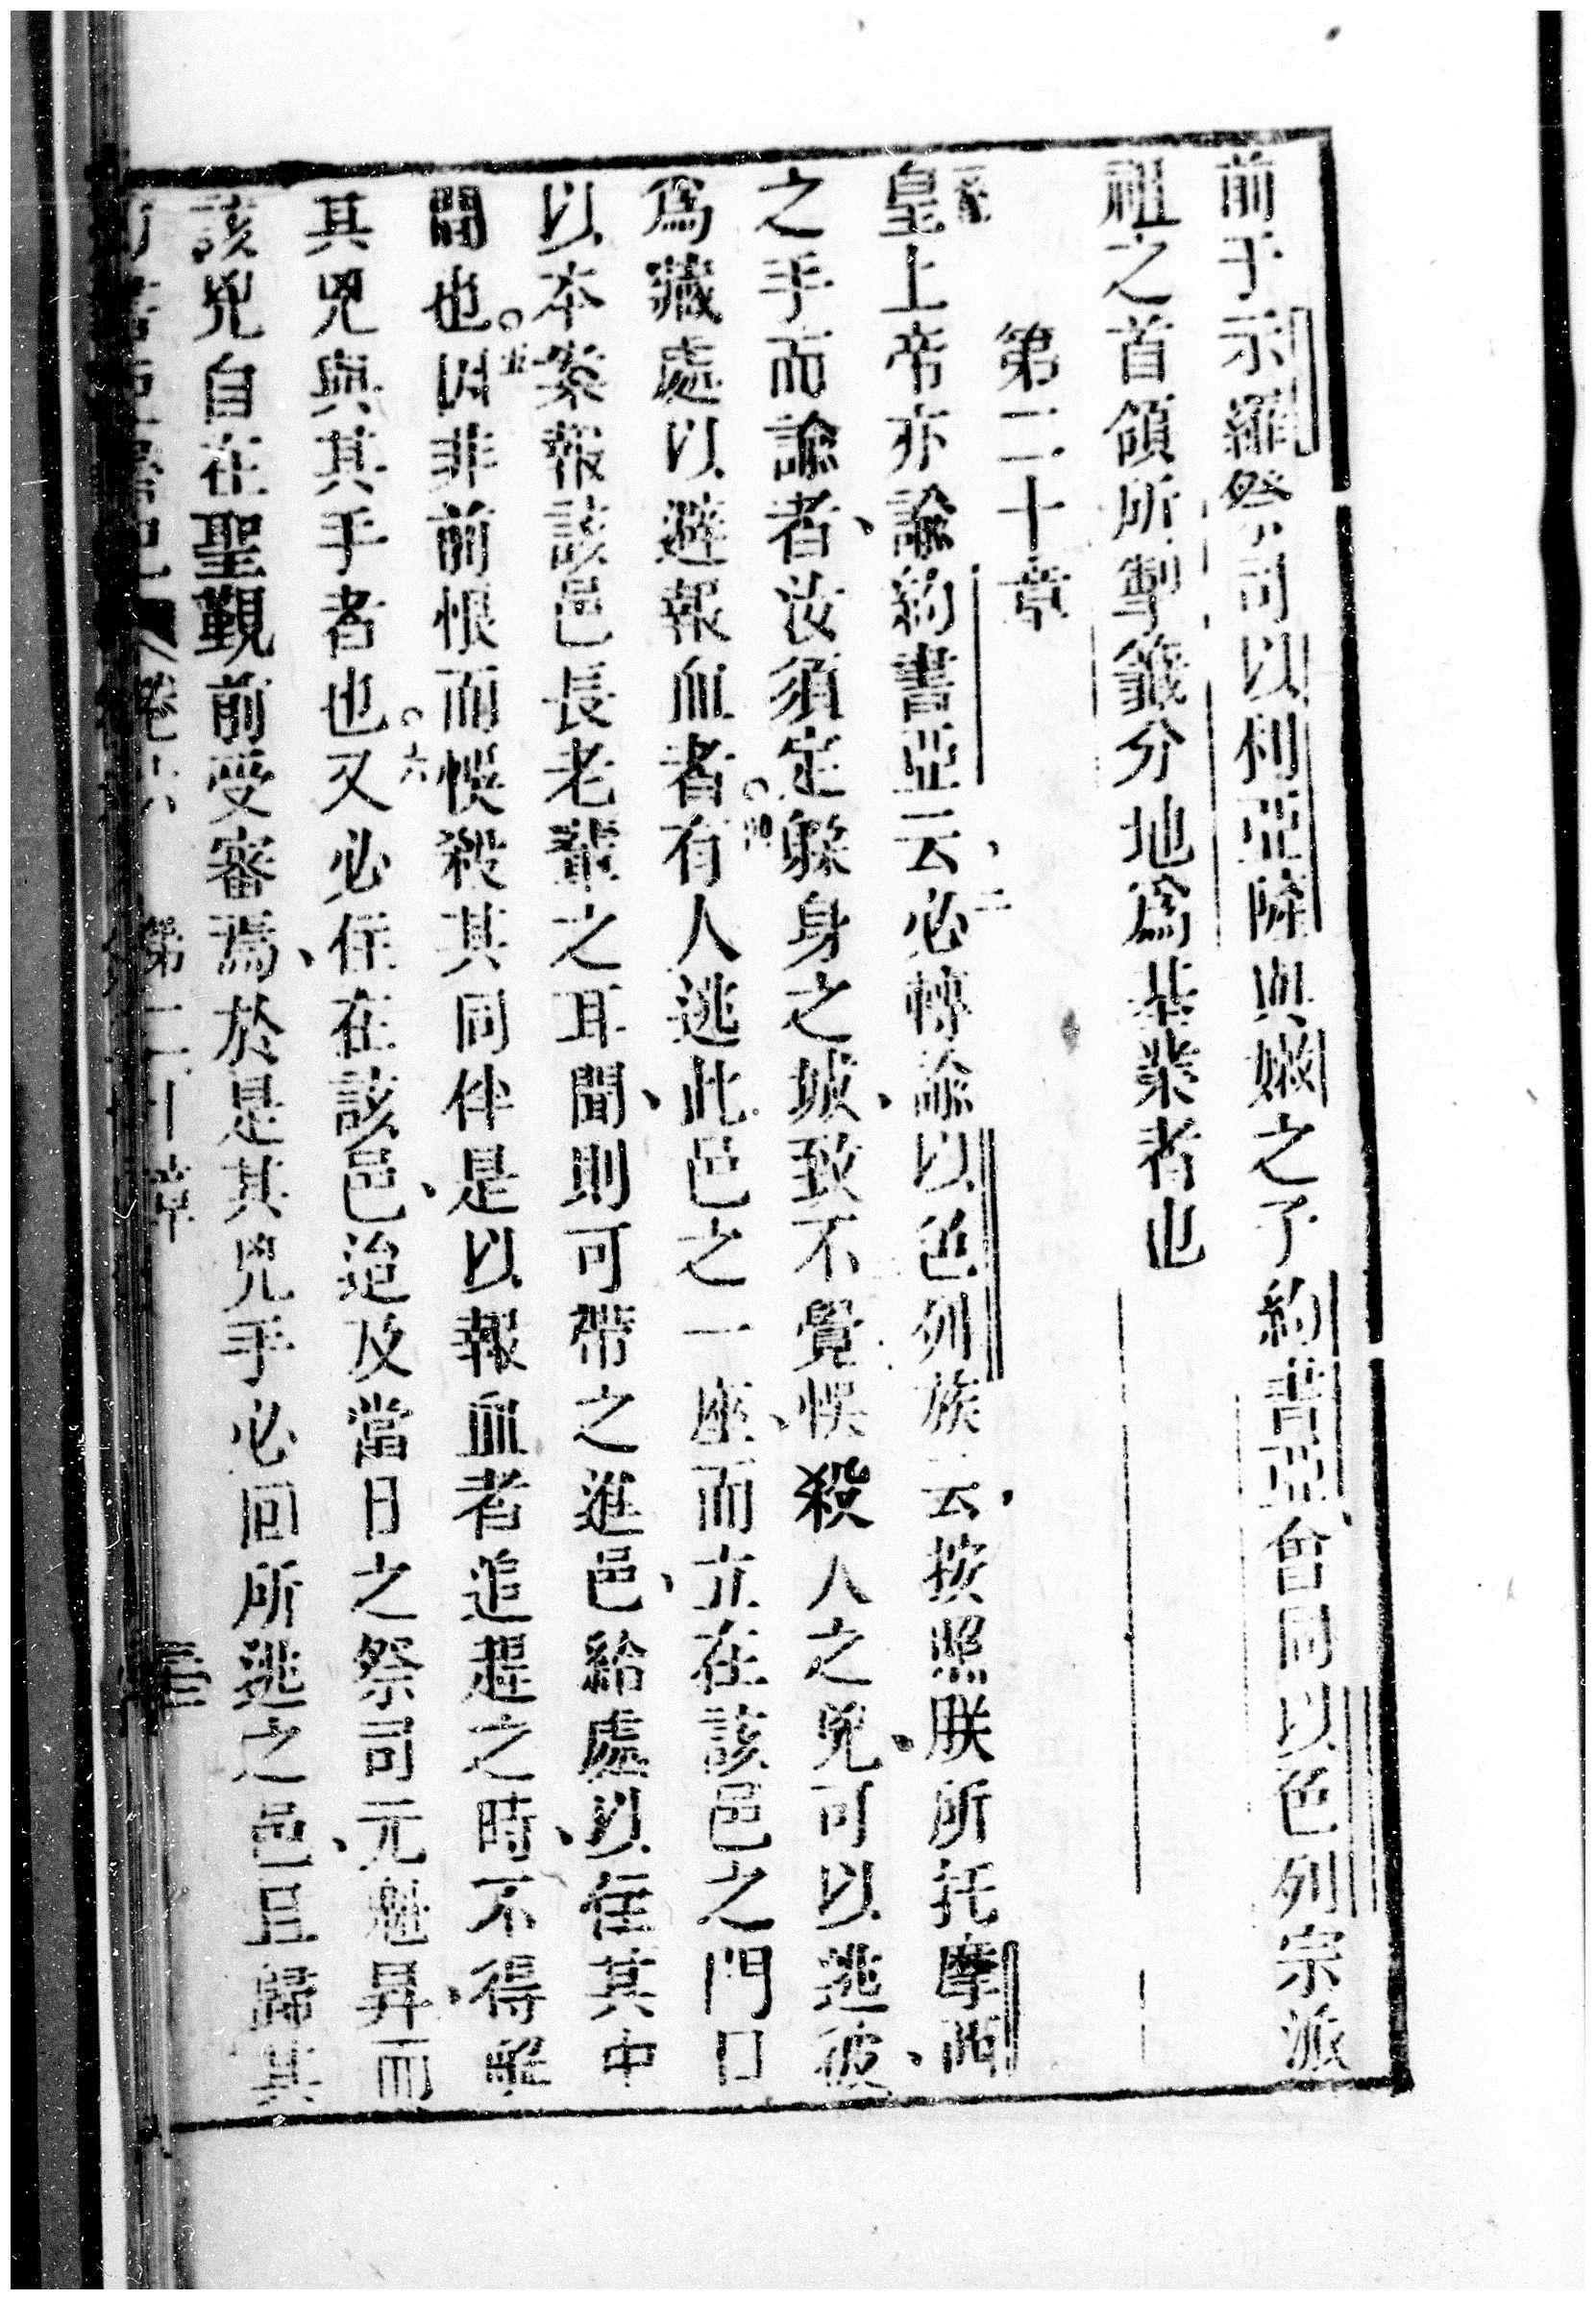 前于示羅祭司以利亞隆與嫩之子約書亞、會同以色列宗派
祖之首領所掣籤分地爲基業者也
第二十章
皇上帝亦諭約書亞云、二必轉諭以色列族云、按照朕所托摩西、
之手而諭者、汝須定躱身之城、致不覺悞殺人之兇、可以逃彼
爲藏處以避報血者。四有人逃此邑之一座、而立在該邑之門口
以本案報該邑長老輩之耳聞、則可帶之進邑、給處以住其中
間也。五因非前恨而悞殺其同伴是以報血者追趕之時、不得解
其兇與其手者也。六又必住在該邑、迨及當日之祭司元魁昇、而
該兇自在聖觀前受審焉、於是其兇手必回所逃之邑、且歸其
卷六 第二十章